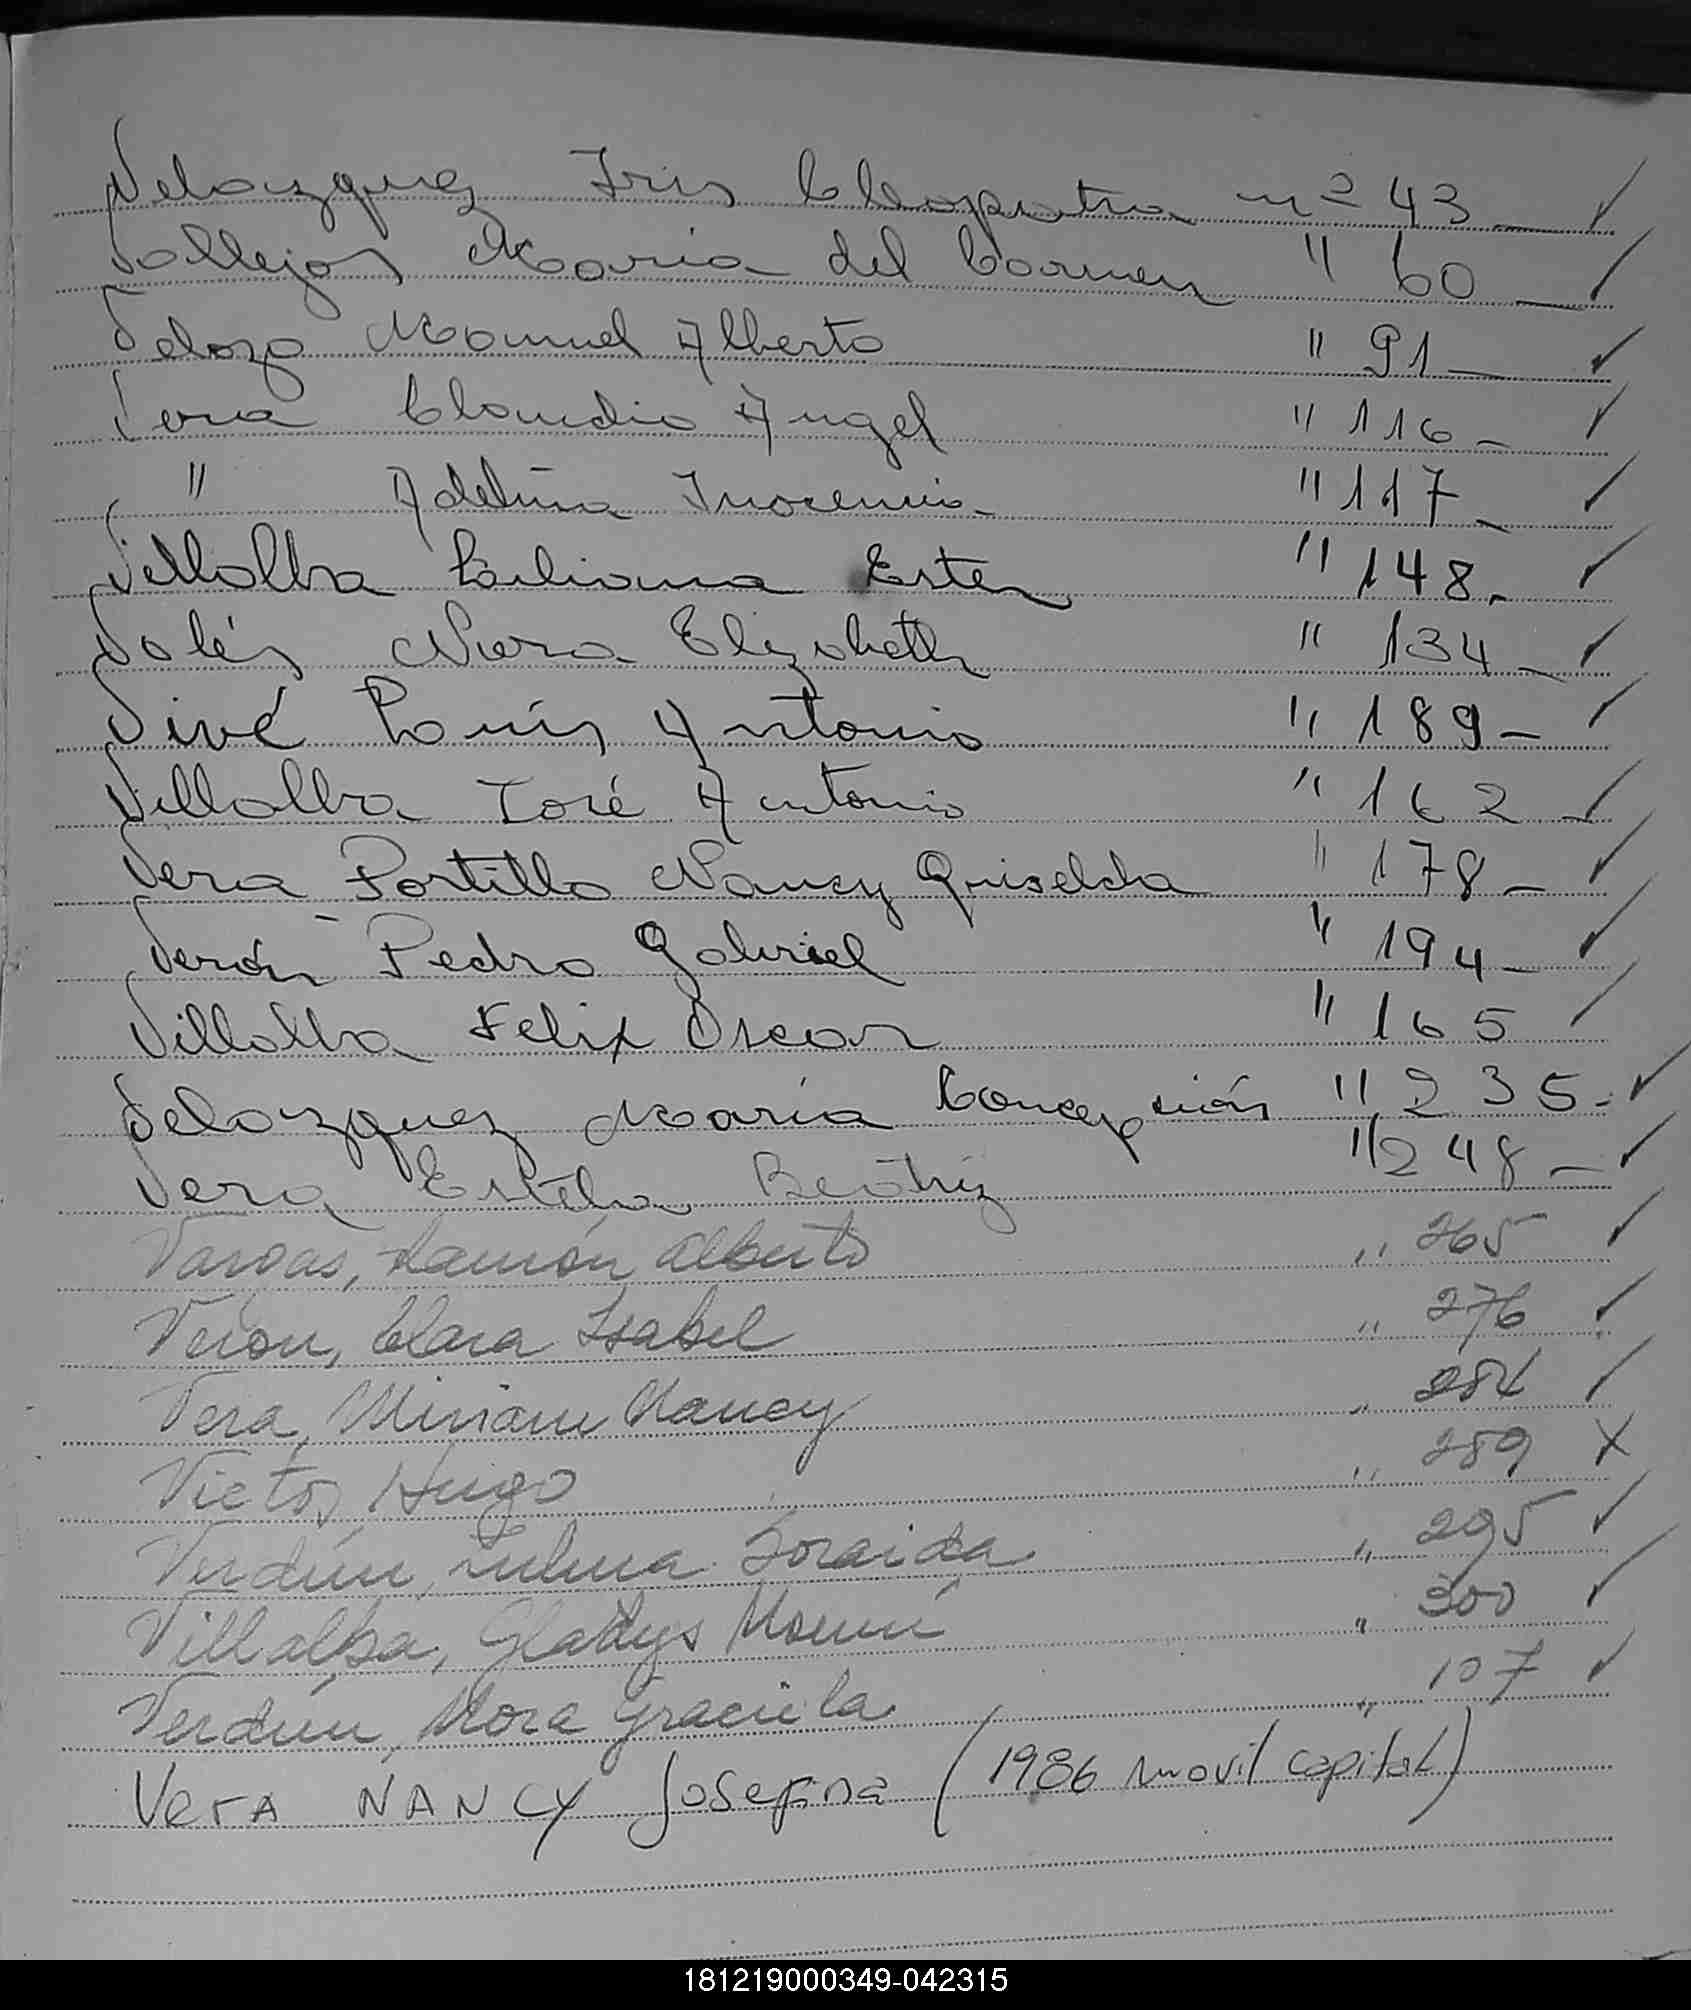 Velazquez Iris Cleopatra nº 43 ✓
Vallejos Maria del Carmen " 60 ✓
Veloza Manuel Alberto " 91 ✓
Vera Claudio Angel " 116 ✓
" Adelina Inocencia " 117 ✓
Villalba Liliana Ester " 148 ✓
Valés Nora Elizabeth " 134 ✓
Vivé Luis Antonio " 189 ✓
Villalba José Antonio " 162 ✓
Vera Portillo Nancy Griselda " 178 ✓
Verón Pedro Gabriel " 194 ✓
Villalba Felix Oscar " 165 ✓
Velazquez María Concepción " 235 ✓
Vera Estela Beatriz " 248 ✓
Vargas, Ramón Alberto " 265 ✓
Veron, Clara Isabel " 276 ✓
Vera, Miriam Nancy " 284 ✓
Victor, Hugo " 289 X
Verdún, Zulma Zoraida " 295 ✓
Villalba, Gladys Noemí " 300 ✓
Verdún, Nora Graciela " 107 ✓
Vera NANCY Josefina (1986 movil capital)
181219000349-042315